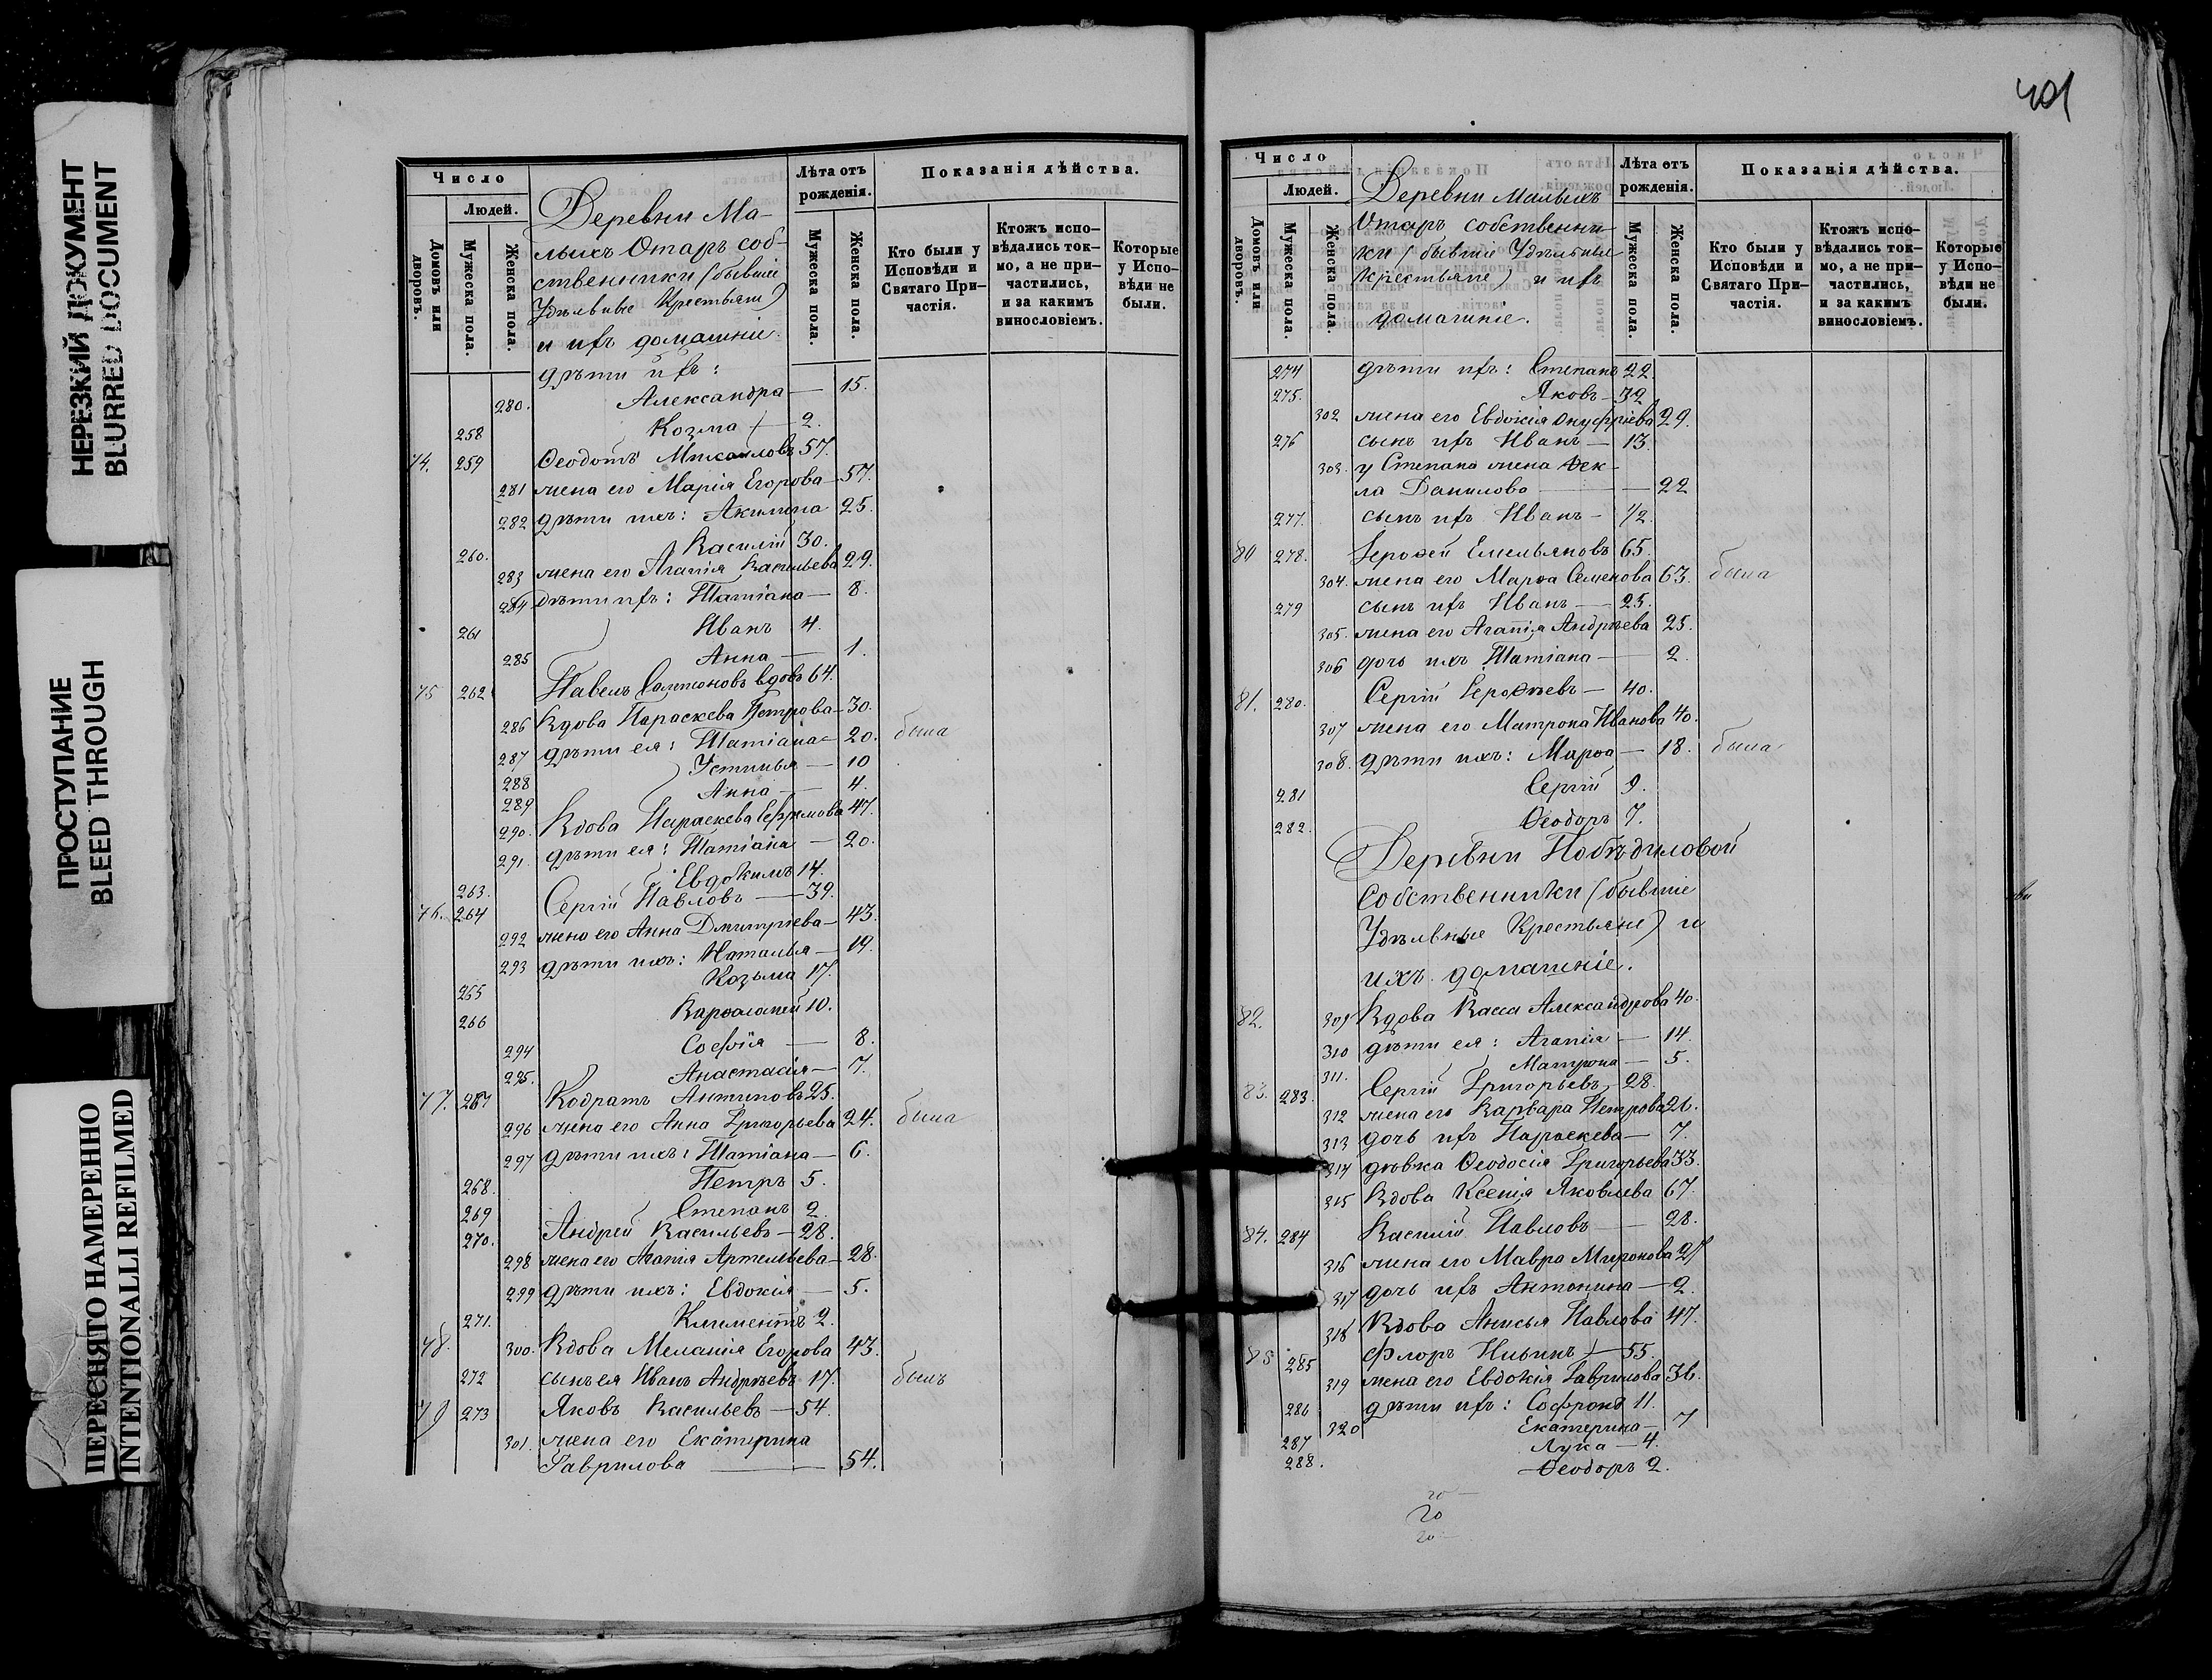 НЕРЕЗКИЙ ДОКУМЕНТ
BLURRED DOCUMENT
ПРОСТУПАНИЕ
BLEED THROUGH
ПЕРЕСНЯТО НАМЕРЕННО
INTENTIONALLI REFILMED
Число
Людей.
Домовъ или дворовъ.
Мужеска пола.
Женска пола.
Деревни Ма-
лыхъ Отаръ соб-
ственники (бывшіе
Удѣльные Крестьяне)
и ихъ домашніе.
Лѣта отъ рожденія.
Мужеска пола.
Женска пола.
Показанія дѣйства.
Кто были у Исповѣди и Святаго При- частія.
Ктожъ испо- вѣдались ток- мо, а не при- частились, и за какимъ винословіемъ.
Которые у Испо- вѣди не были.
дѣти ихъ:
280. Александра — 15.
258 Козма — 2.
74. 259 Ѳеодотъ Михайловъ 57.
281 жена его Марія Егорова — 57.
282 дѣти ихъ: Акилина 25.
260. Василій 30.
283 жена его Агапія Васильева 29.
284 дѣти ихъ: Татіана — 8.
261 Иванъ 4.
285 Анна — 1.
75 262 Павелъ вдовъ 64.
286 Вдова Параскева Петрова — 30.
287 дѣти ея: Татіана — 20. была
288 Устинья — 10
289 Анна — 4.
290. Вдова Параскева Ефимова 47.
291. дѣти ея: Татіана — 20.
263. Евдокимъ 14.
76. 264 Сергій Павловъ — 39.
292 жена его Анна Дмитріева — 43.
293 дѣти ихъ: Наталья — 19.
265 Козьма 17.
266 Варѳаломей 10.
294 Софія — 8.
295. Анастасія — 7.
77. 267 Кодратъ Антиповъ 25.
296 жена его Анна Григорьева 24. была
297 дѣти ихъ: Татіана — 6.
268. Петръ 5.
269 Степанъ 2.
270. Андрей Васильевъ — 28.
298 жена его Агапія Артемьева — 28.
299 дѣти ихъ: Евдокія — 5.
271. Климентъ 2.
78. 300. Вдова Меланія Егорова 43.
272 сынъ ея Иванъ Андреѣвъ 17. былъ
79 273 Яковъ Васильевъ — 54.
301. жена его Екатерина
Гаврилова — 54.
401
Число
Людей.
Домовъ или дворовъ.
Мужеска пола.
Женска пола.
Деревни Малыхъ
Отаръ собственни-
ки (бывшіе Удѣльные
Крестьяне) и ихъ
домашніе.
Лѣта отъ рожденія.
Мужеска пола.
Женска пола.
Показанія дѣйства.
Кто были у Исповѣди и Святаго При- частія.
Ктожъ испо- вѣдались ток- мо, а не при- частились, и за какимъ винословіемъ.
Которые у Испо- вѣди не были.
274 дѣти ихъ: Степанъ 22.
275. Яковъ — 32
302 жена его Евдокія Онуфріева 29.
276 сынъ ихъ Иванъ — 13.
303. у Степана жена Ѳек-
ла Данилова — 22
277. сынъ ихъ Иванъ — 1/2.
80 278. Іероѳей Емельяновъ 65.
304. жена его Марѳа Семенова 63. была
279 сынъ ихъ Иванъ — 25.
305. жена его Агапія Андрѣева 25.
306 дочь ихъ Татіана — 2.
81. 280. Сергій Іероѳѣевъ — 40.
307 жена его Матрона Иванова 40.
308. дѣти ихъ: Марѳа — 18. была
281 Сергій 9.
282. Ѳеодоръ 7.
Деревни Побѣдиловой
Собственники (бывшіе
Удѣльные Крестьяне) и
ихъ домашніе.
82. 309 Вдова Васса Александрова 40.
310 дѣти ея: Агапія — 14.
311. Матрона — 5.
83. 283. Сергій Григорьевъ — 28.
312 жена его Варвара Петрова 26.
313 дочь ихъ Параскева — 7.
314 дѣвка Ѳеодосія Григорьева 33.
315 Вдова Ксенія Яковлева 67.
84. 284 Василій Павловъ — 28.
316 жена его Мавра Миронова 27
317 дочь ихъ Антонина — 2.
318 Вдова Анисья Павлова 47.
85 285 Флоръ Ильинъ — 55.
319 жена его Евдокія Гаврилова 36.
286 дѣти ихъ: Софронъ 11.
320 Екатерина — 7
287 Лука — 4.
288. Ѳеодоръ 2.
20
20
20